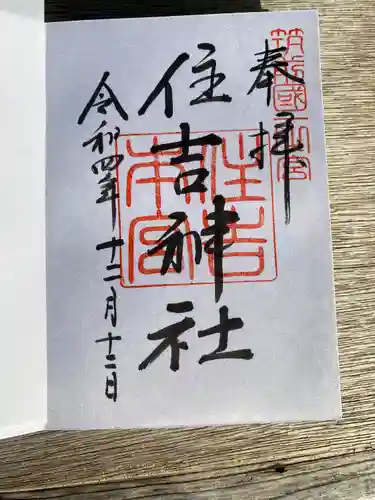 奉拝
筑前國一之宮
住吉神社
住吉本宮
令和四年 十二月十二日